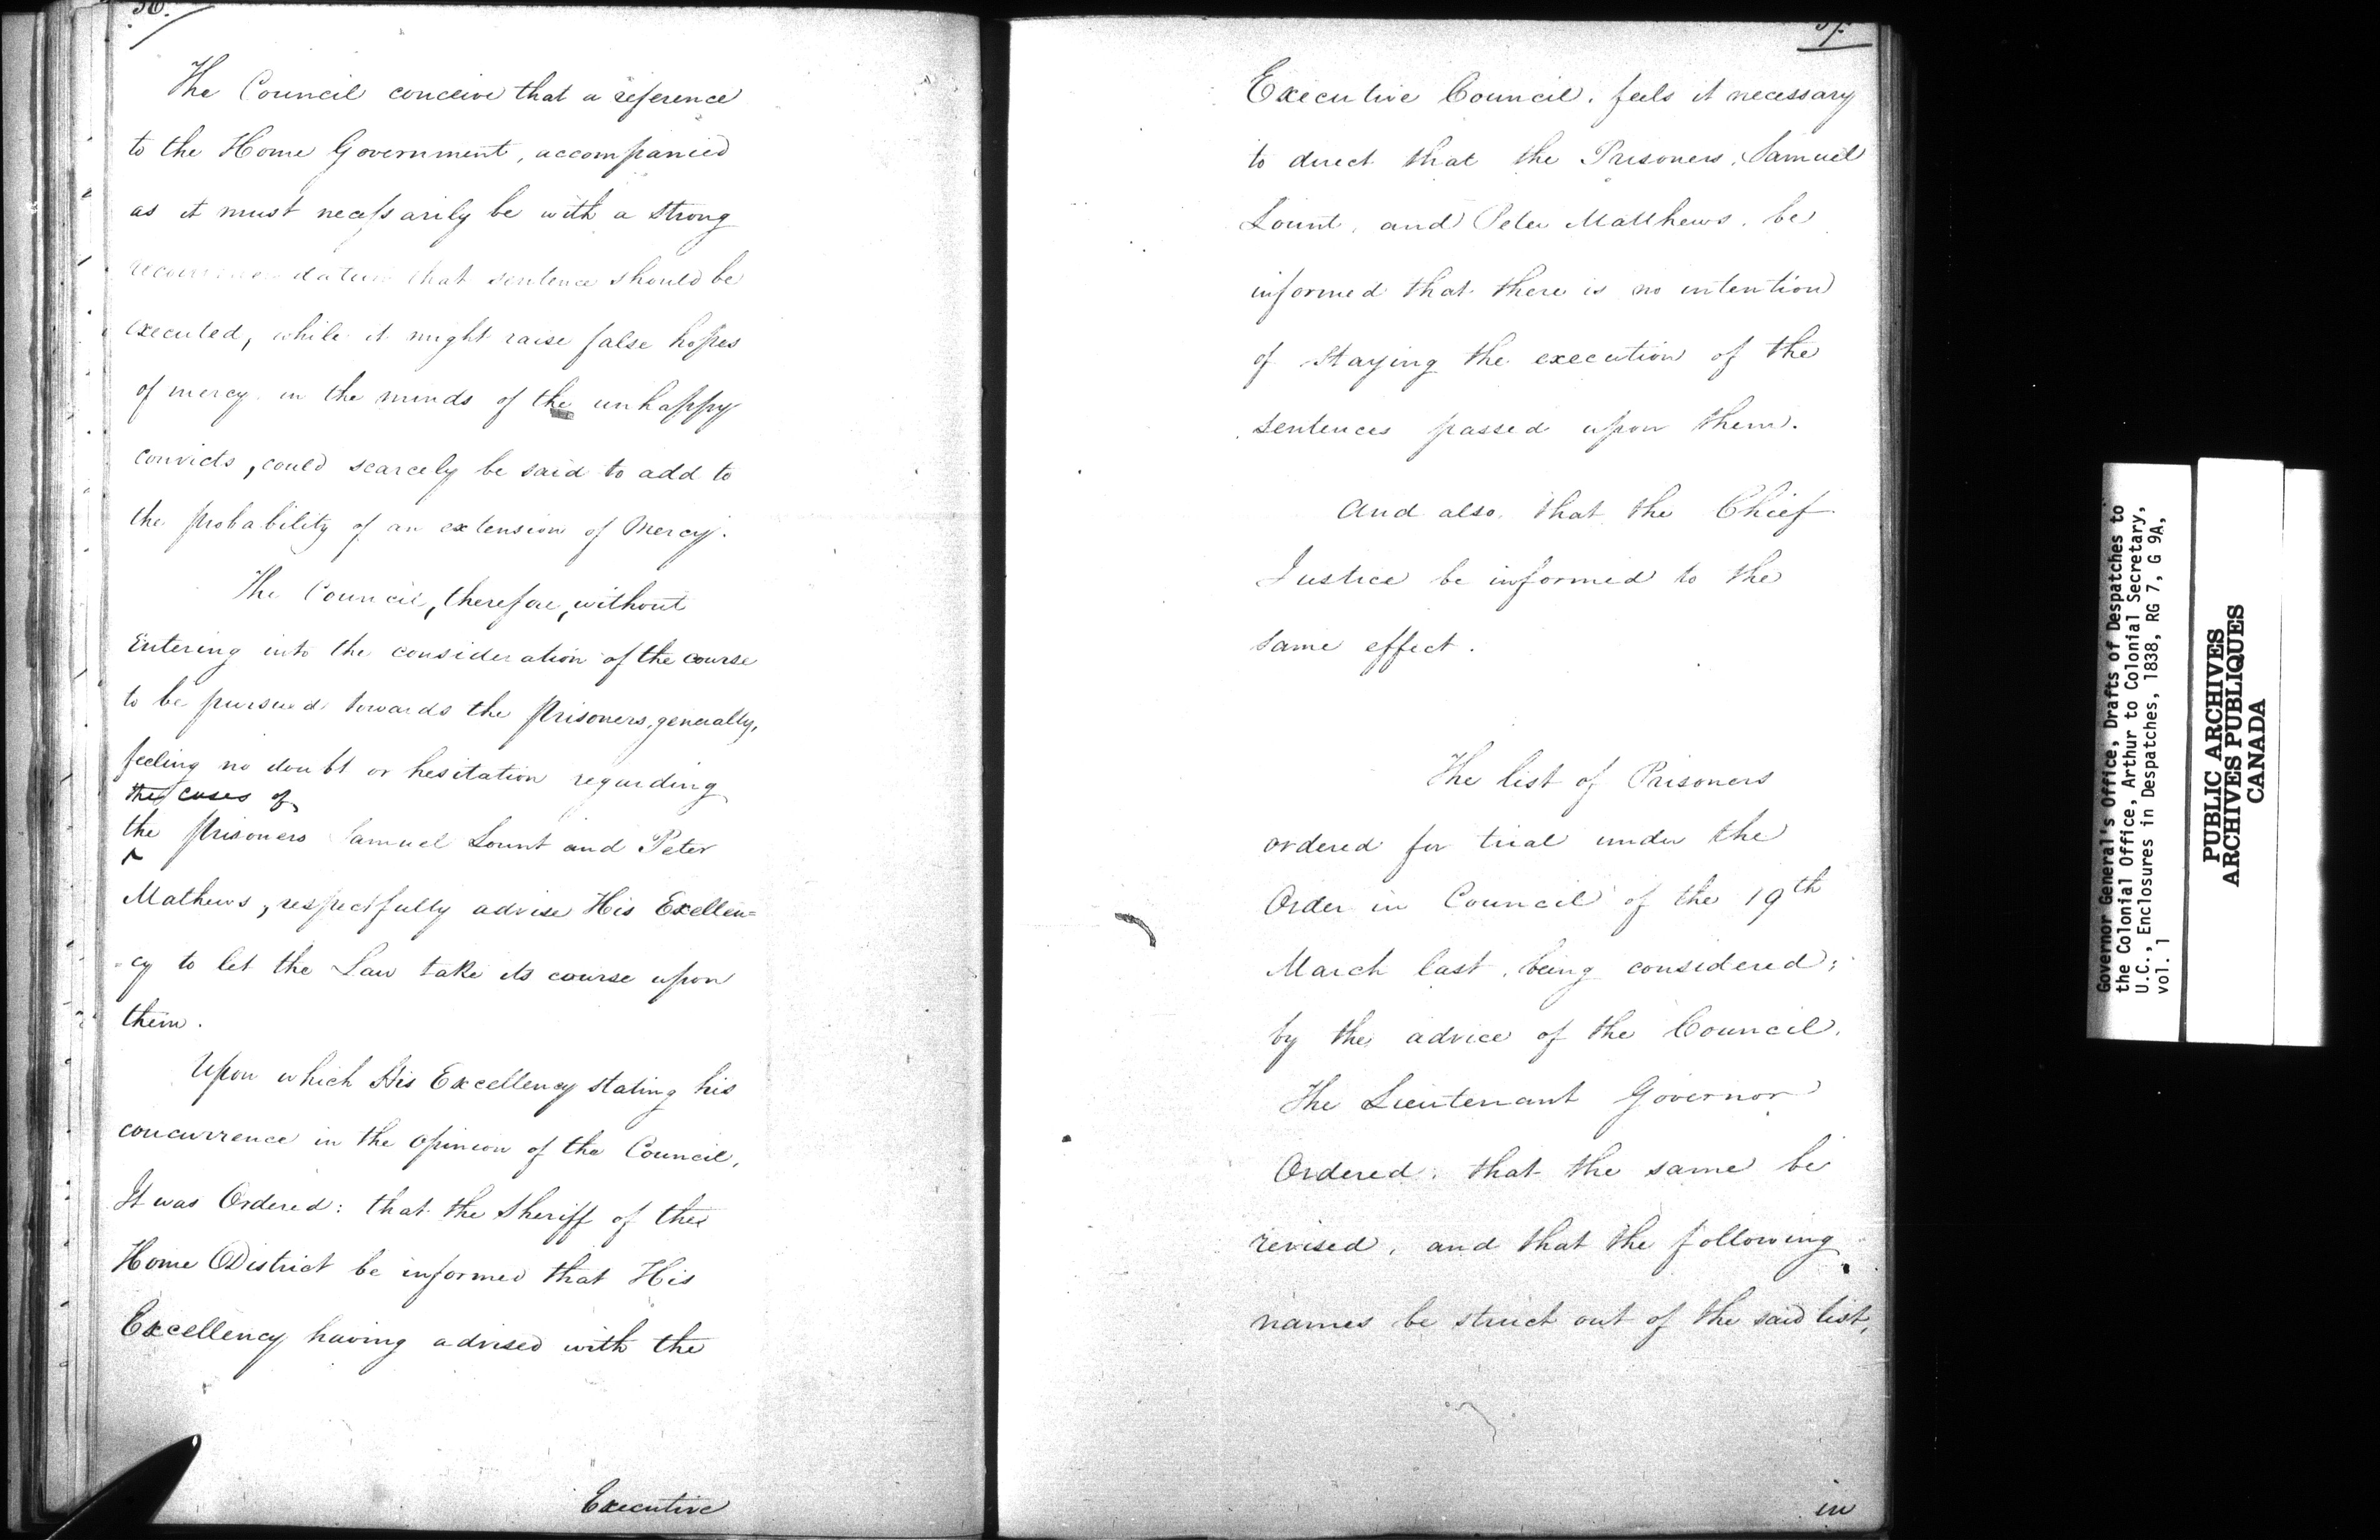 36.
The Council conceive that a reference
to the Home Government, accompanied
as it must necessarily be with a strong
recommendation that sentence should be
executed, while it might raise false hopes
of mercy in the minds of the unhappy
convicts, could scarcely be said to add to
the probability of an extension of Mercy.
The Council, therefore, without
Entering into the consideration of the course
to be pursued towards the prisoners, generally,
feeling no doubt or hesitation regarding
the cases of
the prisoners Samuel Lount and Peter
Mathews, respectfully advise His Exellen=
=cy to let the Law take its course upon
them.
Upon which His Excellency stating his
concurrence in the opinion of the Council,
It was Ordered: that the Sheriff of the
Home District be informed that His
Excellency having advised with the
Executive
37.
Executive Council, feels it necessary
to direct that the Prisoners, Samuel
Lount, and Peter Matthews, be
informed that there is no intention
of staying the execution of the
sentences passed upon them.
And also, that the Chief
Justice be informed to the
same effect.
The list of Prisoners
ordered for trial under the
Order in Council of the 19th
March last, being considered;
by the advice of the Council,
The Lieutenant Governor
Ordered, that the same be
revised, and that the following
names be struck out of the said list,
in
Governor General's Office, Drafts of Despatches to
the Colonial Office, Arthur to Colonial Secretary,
U.C., Enclosures in Despatches, 1838, RG 7, G 9A,
vol. 1
PUBLIC ARCHIVES
ARCHIVES PUBLIQUES
CANADA